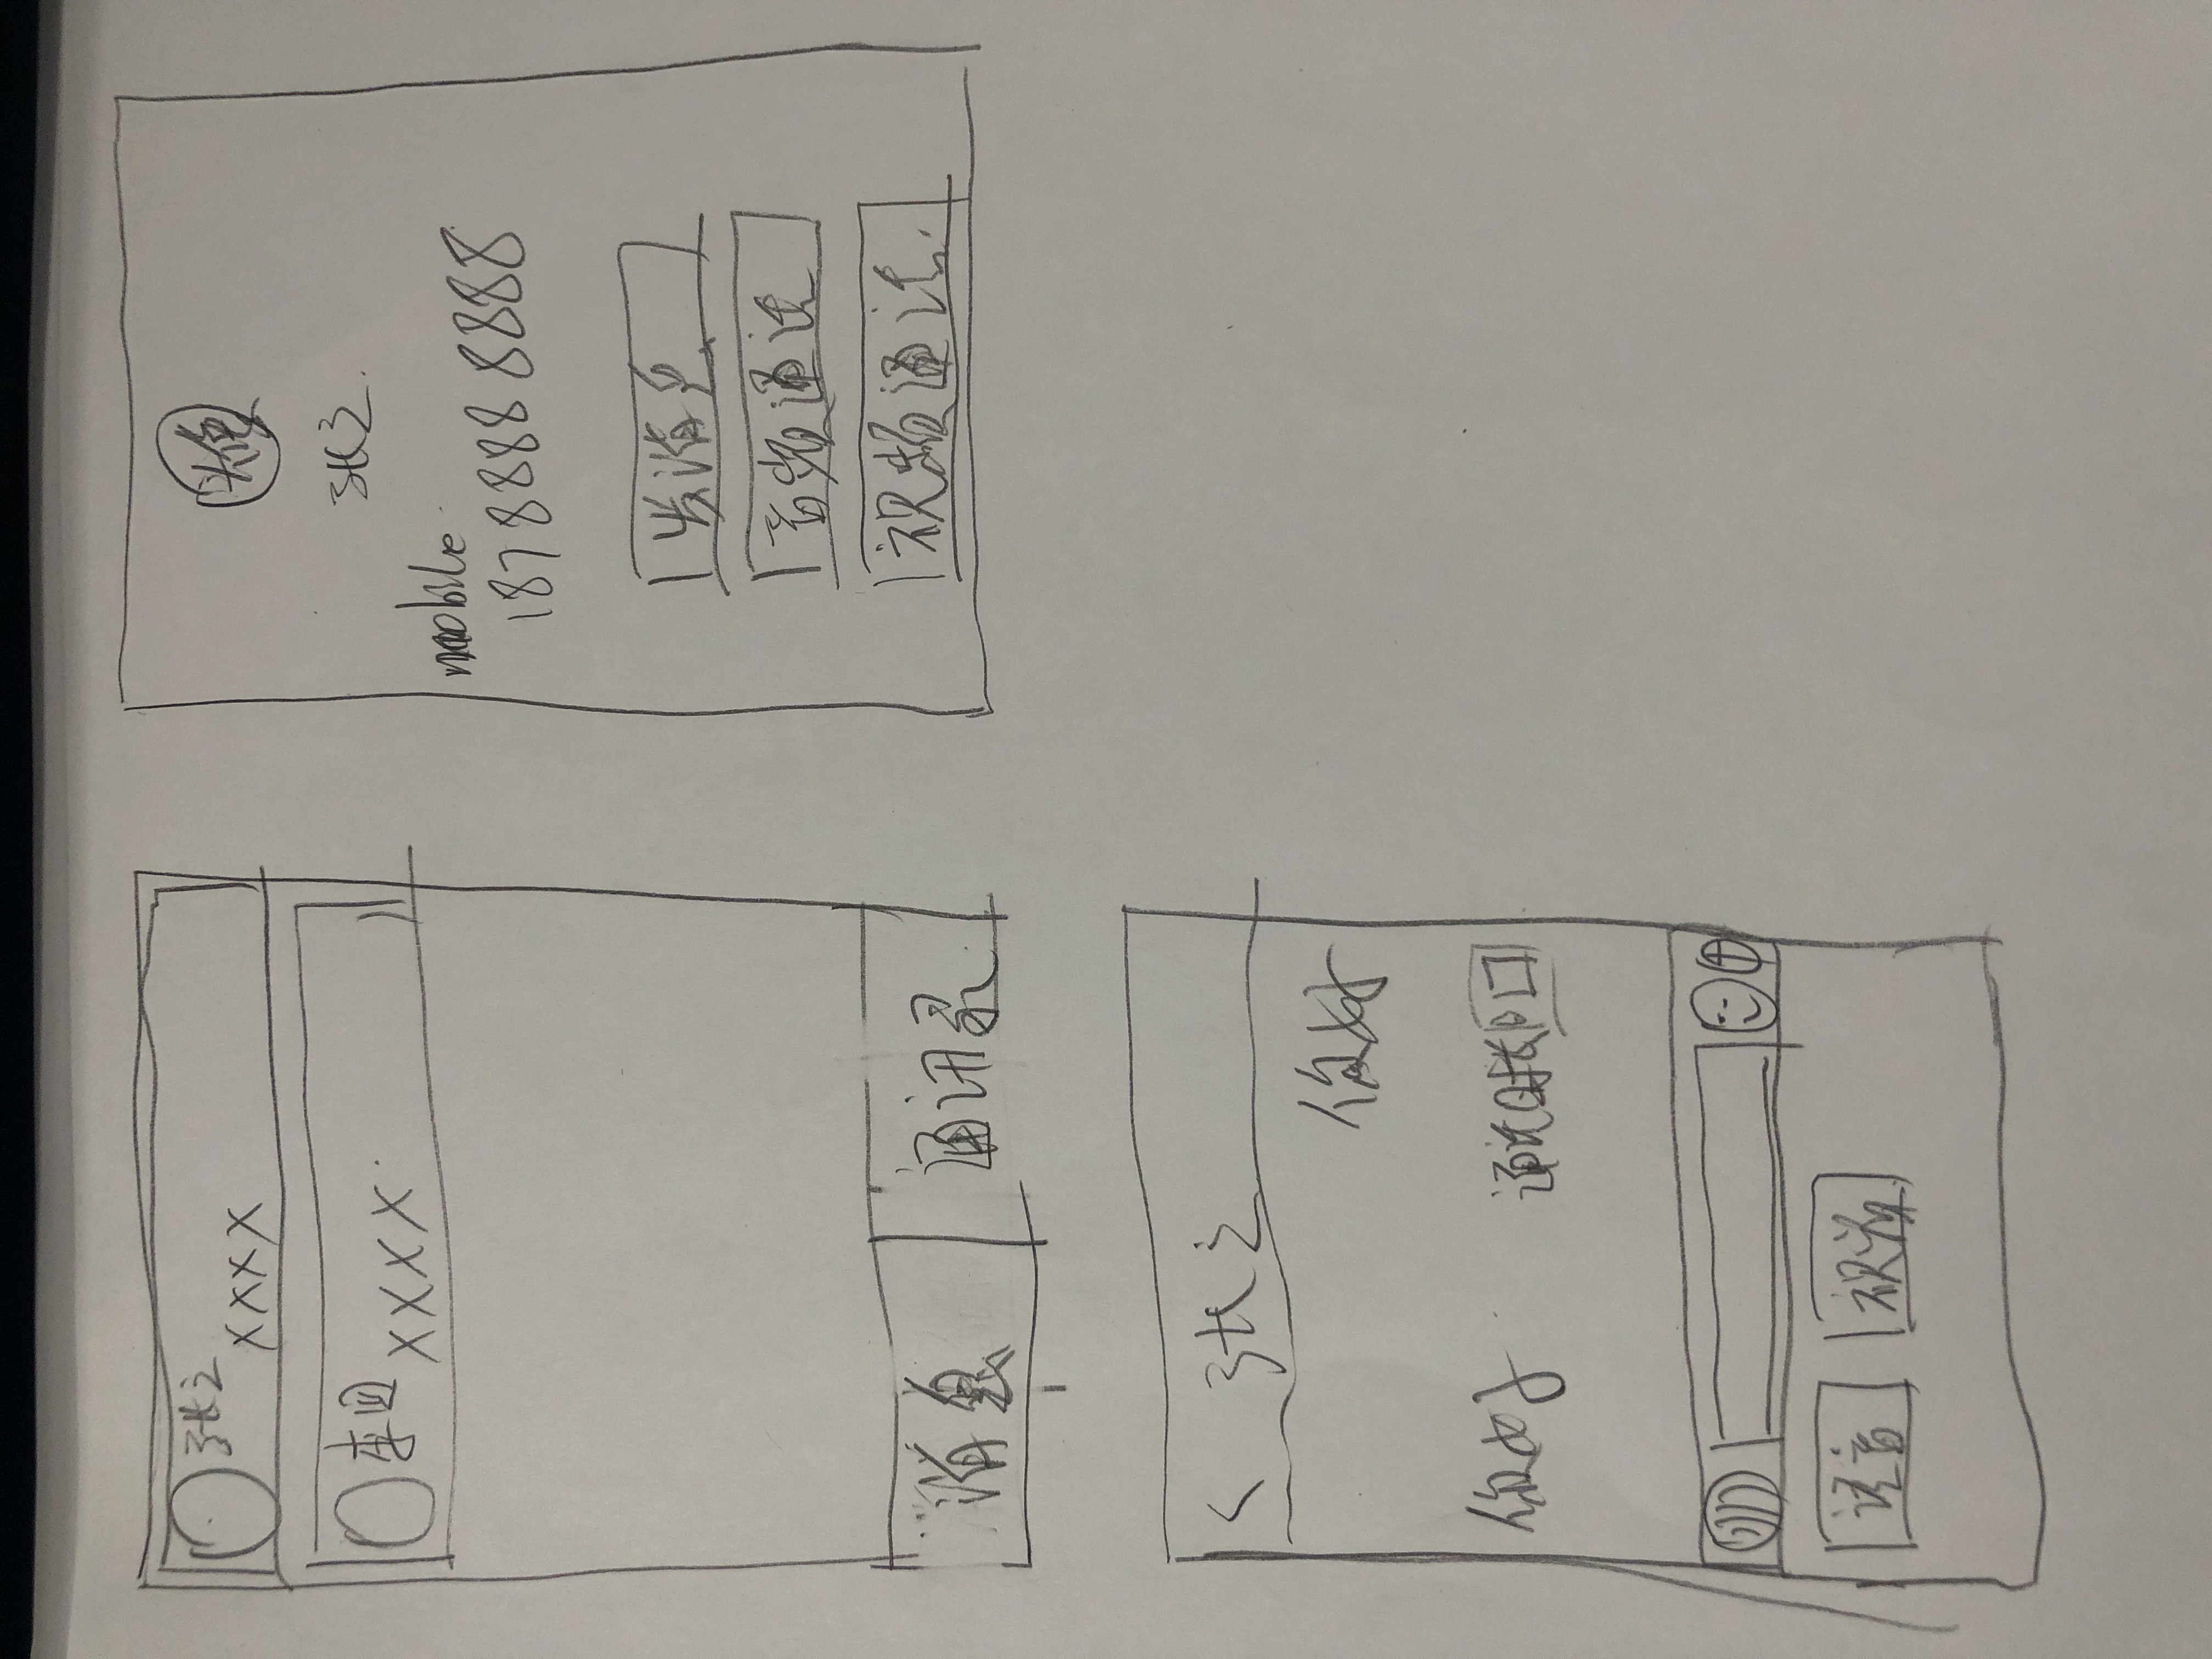 张三
XXXX
李四
XXXX
消息
通讯录
头像
张三
mobile
187 8888 8888
发消息
音频通话
视频通话
< 张三
你好
你好
通话时长
语音
视频